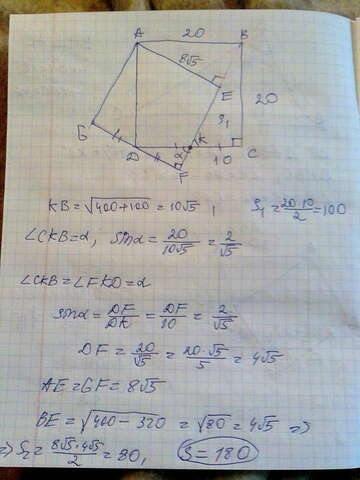 A 20 B
8√5
E
20
S₁
G
K
D 2 10 C
F
KB = √400+100 = 10√5 , S₁ = 20·10/2 = 100
∠CKB = α, sinα = 20/10√5 = 2/√5
∠CKB = ∠FKD = α
sinα = DF/DK = DF/10 = 2/√5
DF = 20/√5 = 20·√5/5 = 4√5
AE = GF = 8√5
BE = √400 − 320 = √80 = 4√5 =>
=> S₂ = 8√5·4√5/2 = 80, S = 180